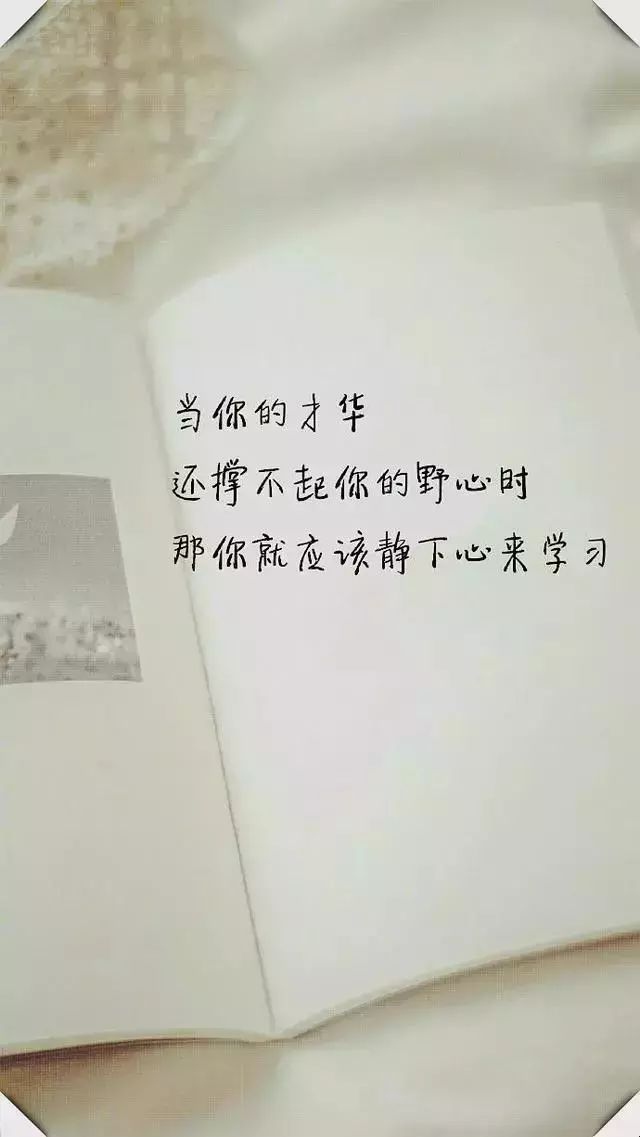 当你的才华
还撑不起你的野心时
那你就应该静下心来学习